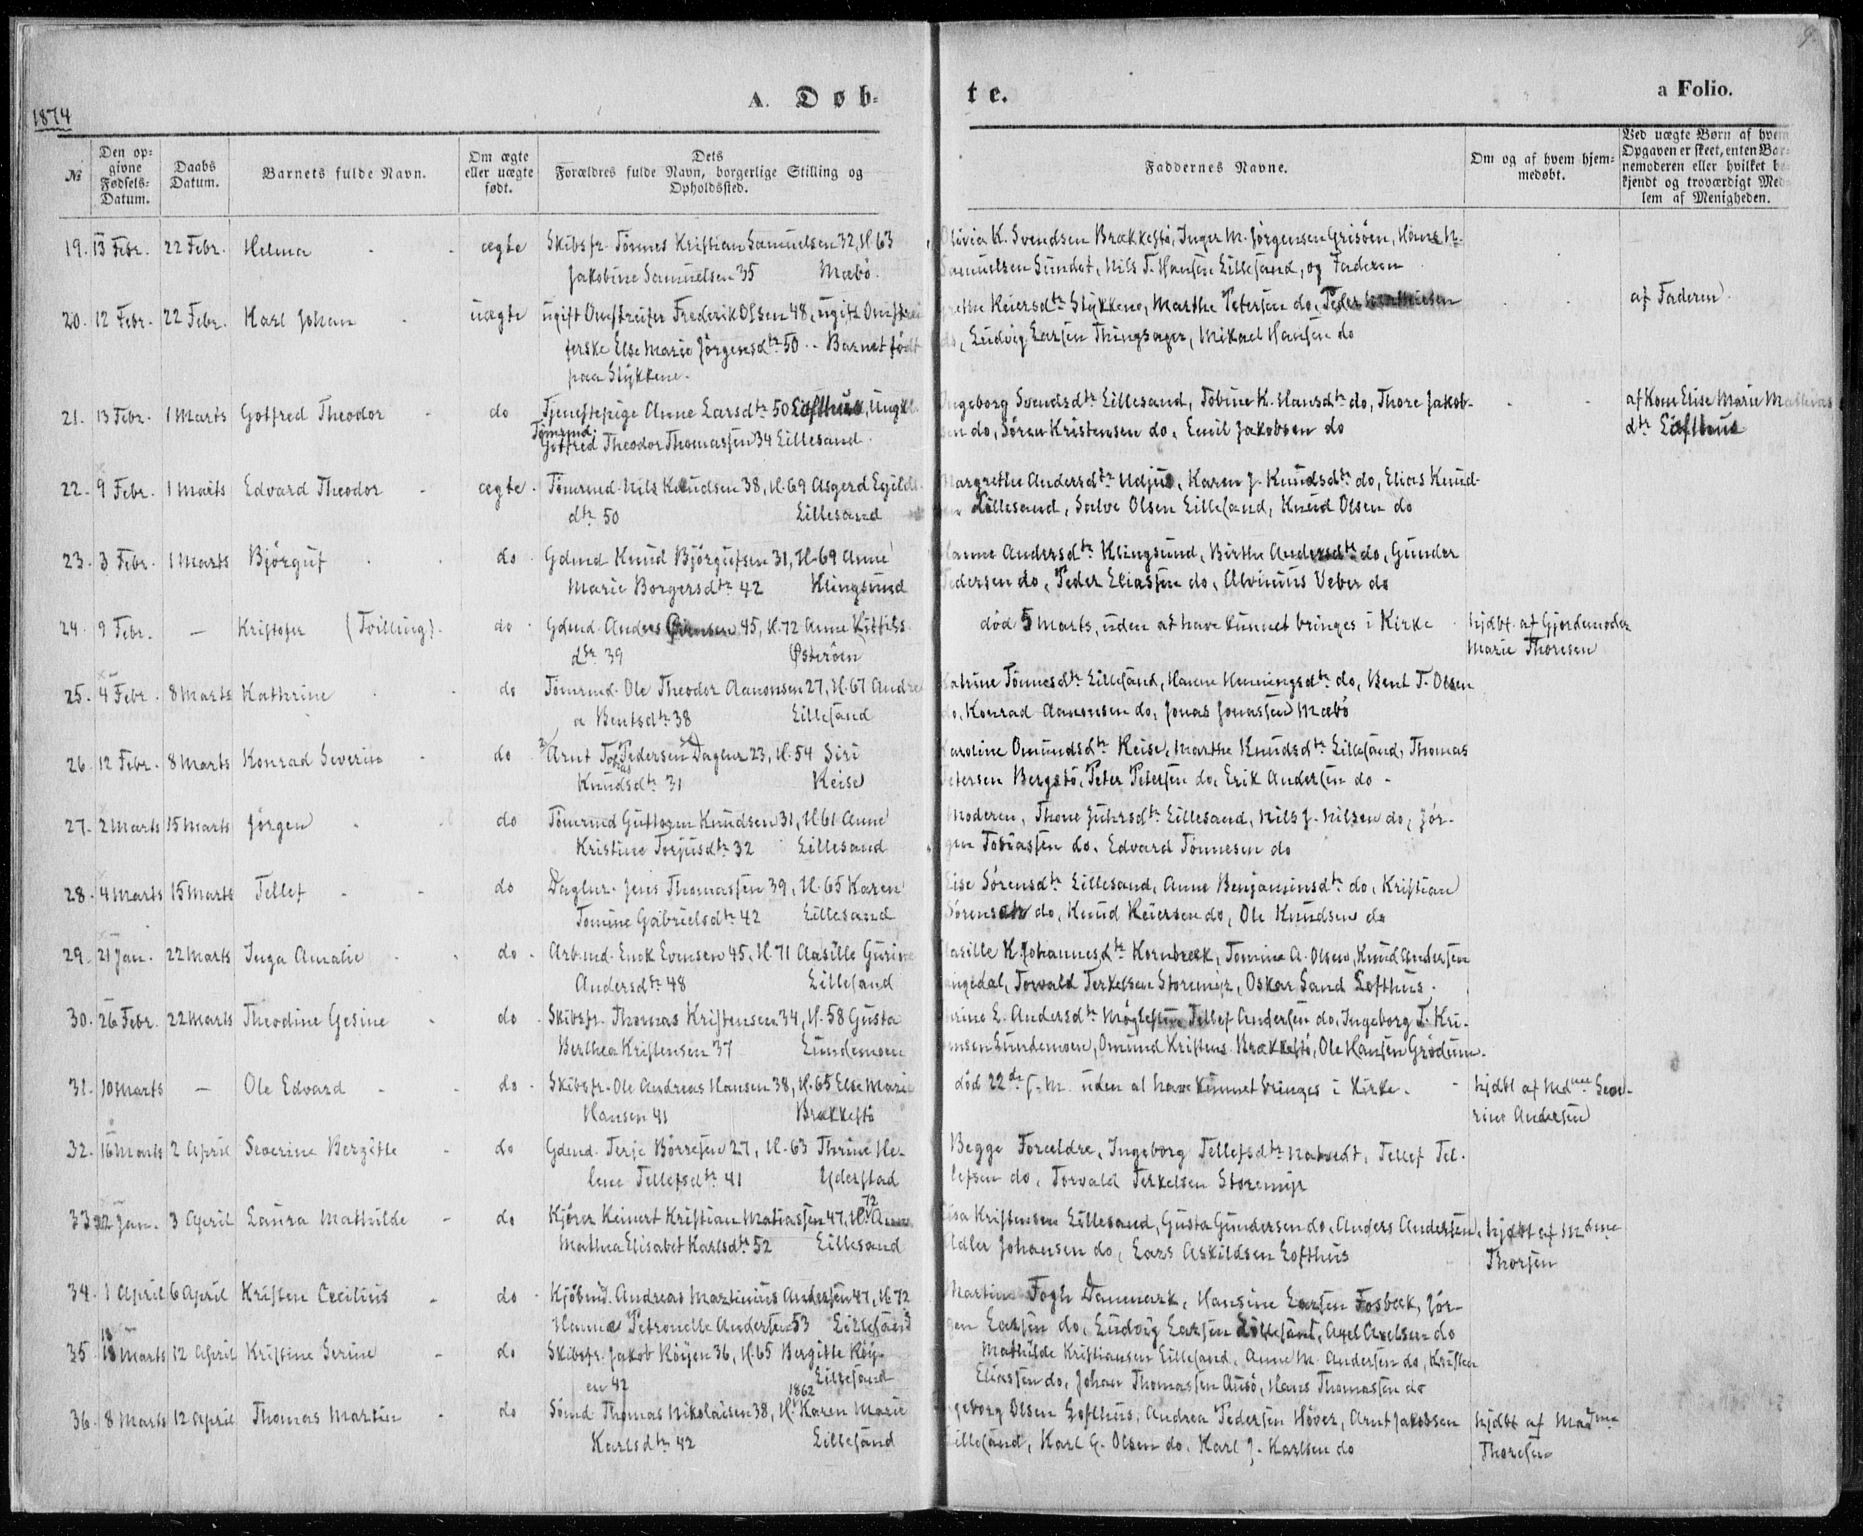 9.
1874
A. Døb-
te.
a Folio.
№
Den op-
givne
Fødsels-
Datum.
Daabs
Datum.
Barnets fulde Navn.
Om ægte
eller uægte
født.
Dets
Forældres fulde Navn, borgerlige Stilling og
Opholdssted.
Faddernes Navne.
Om og af hvem hjem-
medøbt.
Ved uægte Børn af hvem
Opgaven er skeet, enten Bar-
nemoderen eller hvilket be-
kjendt og troværdigt Med-
lem af Menigheden.
19. 13 Febr. 22 Febr. Helma - - ægte Skibsfr. Tønnes Kristian Samuelsen 32, H. 63 Olivia K. Svendsen Brækkestø, Inger M. Jørgensen Grisøen, Hans N.
Jakobine Samuelsen 35 Mæbø. Samuelsen Sundet, Nils T. Hansen Lillesand, og Faderen
20. 12 Febr. 22 Febr. Karl Johan - uægte ugift Omstreifer Frederik Olsen 48, ugift Omstrei Grethe Reiersdtr Stykkene, Marthe Petersen do, Peder - - af Faderen
ferske Else Marie Jørgensdtr 50 - Barnet født do, Ludvig Larsen Thingsager, Mikael Hansen do
paa Stykkene.
21. 13 Febr. 1 Marts Gotfred Theodor - do Tjenestepige Anne Larsdtr 50 Lofthus, Ungkl. Ingeborg Svendsdtr Lillesand, Tobine K. Hansdtr do, Thore Jakob- - - af Kone Elise Marie Mathias
Tømrmd.
Gotfred Theodor Thomassen 34 Lillesand. sen do, Søren Kristensen do, Emil Jakobsen do dtr Lofthus
22. 9 Febr. 1 Marts Edvard Theodor - ægte. Tømrmd. Nils Knudsen 38, H. 69 Asgerd Egilds Margrethe Andersdtr Udjus, Karen J. Knudsdtr do, Elias Knud-
dtr 50 Lillesand sen Lillesand, Salve Olsen Lillesand, Knud Olsen do
23. 3 Febr. 1 Marts Bjørguf - do. Gdmd Knud Bjørgufsen 31, H. 69 Anne Hanne Andersdtr Klingsund, Birthe Andersdtr do, Gunder
Marie Borgersdtr 42 Klingsund Pedersen do, Peder Eliassen do, Alvinius Veber do
24. 9 Febr. — Kristofer (Tvilling). do. Gdmd. Anders 45, H. 72 Anne Kittils død 5 Marts, uden at have kunnet bringes i Kirke hjdbt. af Gjordemoder
dtr 39 Østerøen Marie Thoresen
25. 4 Febr. 8 Marts Kathrine - do Tømrmd. Ole Theodor Aanonsen 27, H. 67 Andre Katrine Tønnesdtr Lillesand, Hanne Henningsdtr do, Bent T. Olsen
a Bentsdtr 38 Lillesand do, Konrad Aanonsen do, Jonas Jonassen Mæbø
26. 12 Febr. 8 Marts Konrad Severin - do Arnt Tobias Pedersen Daglnr 23, H. 54 Siri Karoline Omundsdtr Heise, Marthe Knudsdtr Lillesand, Thomas
Knudsdtr 31 Heise Petersen Bergstø, Peter Petersen do, Erik Andersen do -
27. 2 Marts 15 Marts Jørgen - do Tømrmd Guttorm Knudsen 31, H. 61 Anne Moderen, Thone Juhrsdtr Lillesand, Nils J. Nilsen do, Jør-
Kristine Torjusdtr 32 Lillesand gen Tobiassen do. Edvard Tønnesen do
28. 4 Marts 15 Marts Tellef - - do Daglnr. Jens Thomassen 39, H. 65 Karen Lise Sørensdtr Lillesand, Anne Benjaminsdtr do, Kristian
Tomine Gabrielsdtr 42 Lillesand Sørensen do, Knud Reiersen do, Ole Knudsen do
29. 21 Jan. 22 Marts Inga Amalie - - do. Arbmd. Enok Evensen 45, H. 71 Aasille Gurine Aasille K. Johannesdtr Kornbrek, Tomine A. Olsen, Knud Andersen
Andersdtr 48 Lillesand Langedal, Torvald Terkelsen Storemyr, Oskar Sand Lofthus.
30. 26 Febr. 22 Marts Theodine Gesine - do. Skibsfr. Thomas Kristensen 34, H. 58 Gusta L. Andersdtr Møglestue Tellef Andersen do, Ingeborg T. Kri-
Berthea Kristensen 37 Lundemoen Lundemoen, Omund Kristens. Brækkestø, Ole Hansen Grødum.
31. 10 Marts — Ole Edvard - - do. Skibsfr. Ole Andreas Hansen 38, H. 65 Else Marie død 22de s. M. uden at have kunnet bringes i Kirke. - hjdbt af Mdme Seve-
Hansen 41 Brækkestø rine Andersen
32. 16 Marts 2 April Severine Bergitte - do Gdmd. Terje Børresen 27, H. 63 Thrine He- Begge Forældre, Ingeborg Tellefsdtr Natvedt, Tellef Tel-
lene Tellefsdtr 41 Yderstad lefsen do, Torvald Terkelsen Storemyr
33. 22 Jan. 3 April Laura Mathilde - do Kjører Reinert Kristian Matiassen 47, H. 72 Anne Lisa Kristensen Lillesand, Gusta Gundersen do. Anders Andersen, hjdbt af Mdme
Mathea Elisabet Karlsdtr 52 Lillesand Adler Johansen do, Lars Askildsen Lofthus Thorsen
34. 1 April 6 April Kristen Cecilius - do. Kjøbmd. Andreas Martinius Andersen 47, H. 72 Martine Fogh Danmark, Hansine Larsen Fosbæk, Jør-
Hanna Petronelle Andersen 53 Lillesand gen Larsen do, Ludvig Larsen Lillesand, Axel Axelsen do
35. 18 Marts 12 April Kristine Serine - do Skibsfr. Jakob Køijen 36, H. 65 Bergitte Køij- Mathilde Kristiansen Lillesand, Anne M. Andersen do, Kristen
en 42 Lillesand Eliassen do, Johan Thomassen Ausø, Hans Thomassen do
36. 8 Marts 12 April Thomas Martin - do Sømd Thomas Nikolaisen 38, H. 1862 Karen Marie Ingeborg Olsen Lofthus, Andrea Pedersen Høver, Arnt Jakobsen hjdbt af Madme
Karlsdtr 42 Lillesand Lillesand, Karl G. Olsen do, Karl J. Karlsen do Thoresen